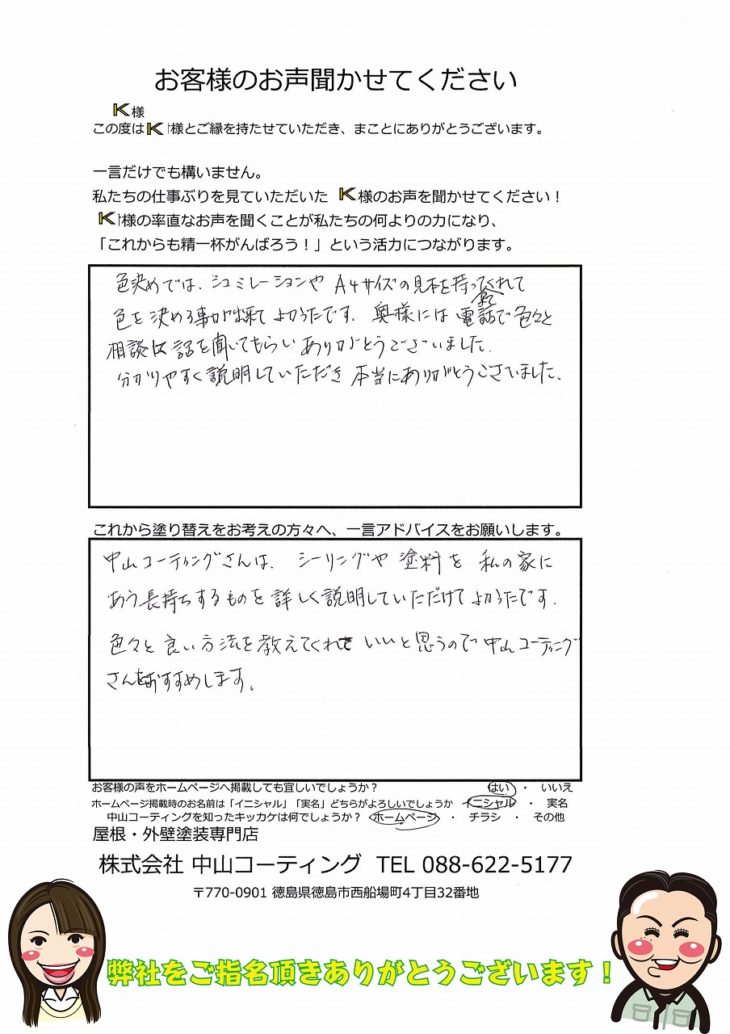 お客様のお声聞かせてください
K様
この度はK様とご縁を持たせていただき、まことにありがとうございます。
一言だけでも構いません。
私たちの仕事ぶりを見ていただいた K様のお声を聞かせてください！
K様の率直なお声を聞くことが私たちの何よりの力になり、
「これからも精一杯がんばろう！」という活力につながります。
色決めでは、シュミレーションや A4サイズの見本を持ってくれて
色を決める事が出来て よかったです。奥様には 電話で色々と
相談 話を聞いてもらい ありがとうございました。
分かりやすく説明していただき 本当にありがとうございました。
これから塗り替えをお考えの方々へ、一言アドバイスをお願いします。
中山コーティングさんは、シーリングや 塗料を 私の家に
あう長持ちするものを 詳しく説明していただけて よかったです。
色々と 良い方法を教えてくれて いいと思うので 中山コーティング
さんおすすめします。
お客様の声をホームページへ掲載しても宜しいでしょうか？ はい ・ いいえ
ホームページ掲載時のお名前は「イニシャル」「実名」どちらがよろしいでしょうか イニシャル ・ 実名
中山コーティングを知ったキッカケは何でしょうか？ ホームページ ・ チラシ ・ その他
屋根・外壁塗装専門店
株式会社 中山コーティング TEL 088-622-5177
〒770-0901 徳島県徳島市西船場町4丁目32番地
弊社をご指名頂きありがとうございます！